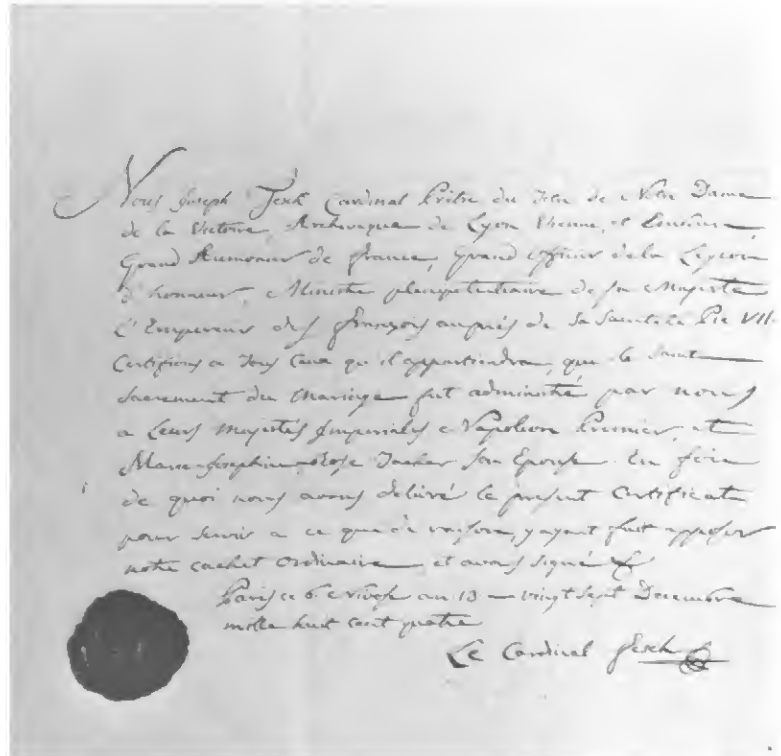 Nous Joseph Fesch Cardinal Prêtre du Titre de Notre Dame
de la Victoire, Archeveque de Lyon Vienne, et Embrun,
Grand Aumonier de france, Grand officier de la Legion
d'honneur, Ministre plenipotentiaire de sa Majesté
l'Empereur des françois auprés de Sa Sainteté Pie VII.
Certifions a Tous Ceux qu'il appartiendra, que le Saint
Sacrement du Mariage fut administré par nous
a Leurs Majestés Imperiales Napoleon Premier, et
Marie-Josephine-Rose Tascher Son Epouse. En foi
de quoi nous avons delivré le present Certificat
pour servir a ce que de raison, y ayant fait apposer
notre cachet ordinaire, et avons signé
Paris ce 6. Nivose an 13 — vingt Sept Decembre
mille huit cent quatre
Le Cardinal Fesch